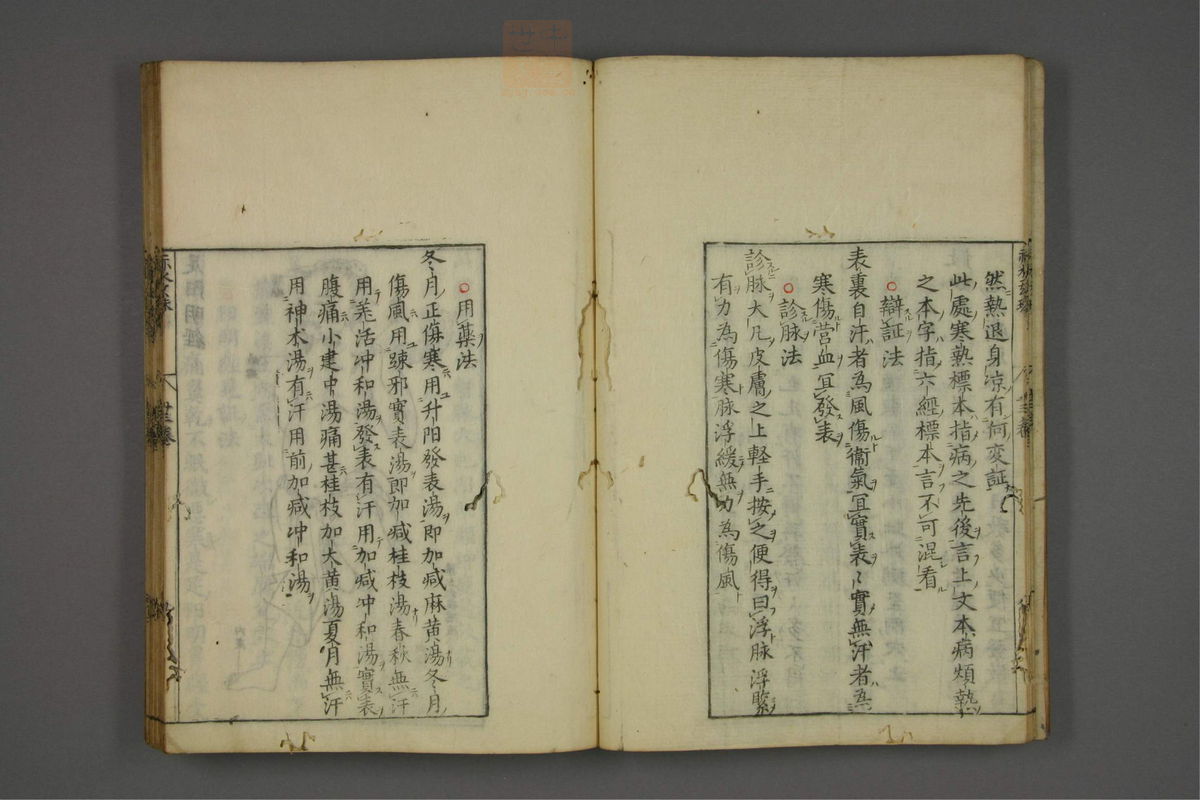 然熱退身凉有何変証
此處寒熱標本指病之先後言上文本病煩熱
之本字指六經標本言不可混看
○辯証法
表裏自汗者為風傷衞氣宜實表〻實無汗者為
寒傷営血宜發表
○診脉法
診脉大凡皮膚之上軽手按之便得曰浮脉浮緊
有力為傷寒脉浮緩無力為傷風
○用藥法
冬月正傷寒用升阳發表湯即加减麻黄湯冬月
傷風用踈邪實表湯即加减桂枝湯春秋無汗
用羌活冲和湯發表有汗用加减冲和湯實表
腹痛小建中湯痛甚桂枝加大黄湯夏月無汗
用神术湯有汗用前加减冲和湯